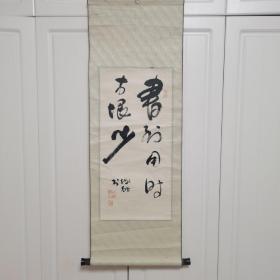 書到用时
方恨少